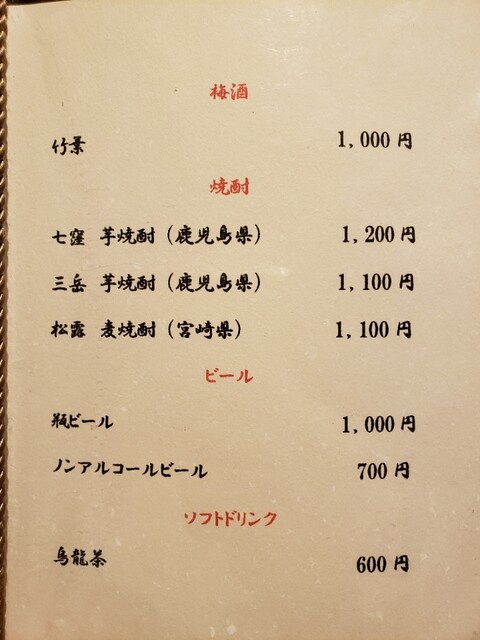 梅酒
竹葉 1,000円
焼酎
七窪 芋焼酎（鹿児島県） 1,200円
三岳 芋焼酎（鹿児島県） 1,100円
松露 麦焼酎（宮崎県） 1,100円
ビール
瓶ビール 1,000円
ノンアルコールビール 700円
ソフトドリンク
烏龍茶 600円